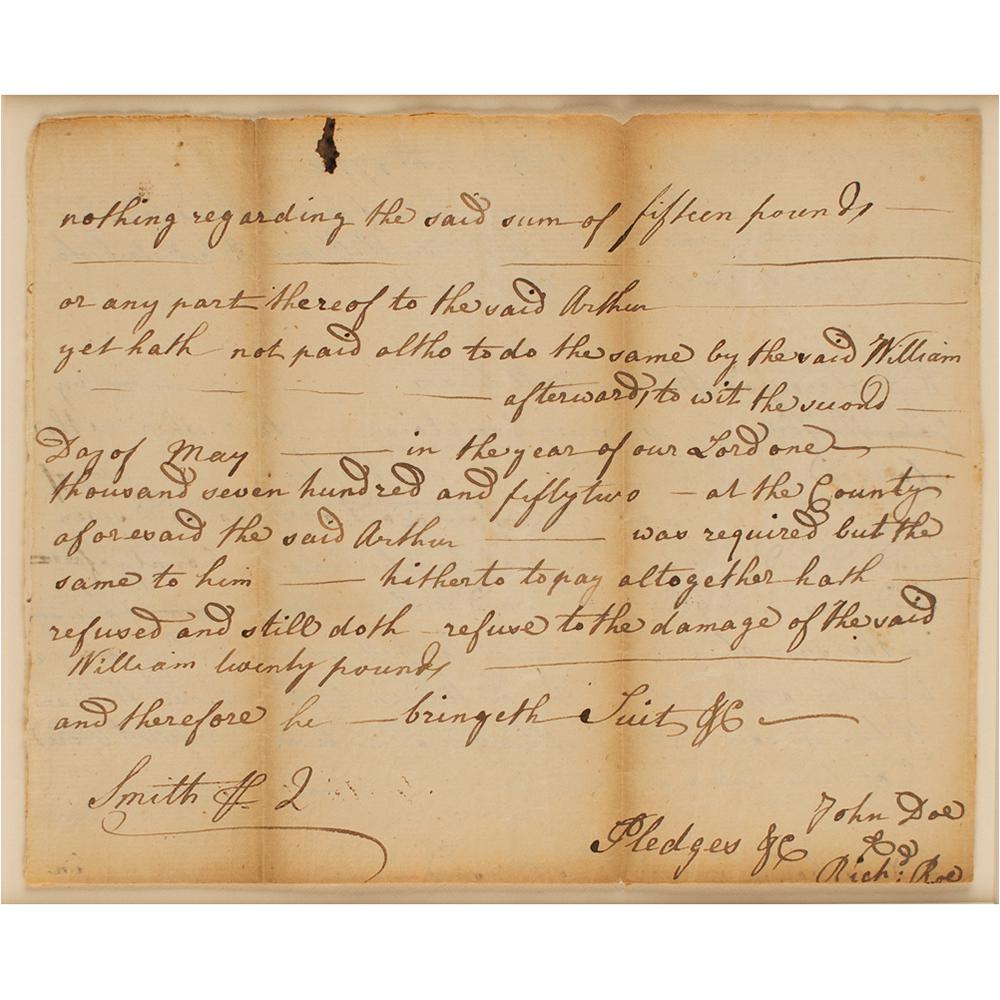 nothing regarding the said sum of fifteen pounds
or any part thereof to the said Arthur
yet hath not paid altho to do the same by the said William
afterwards, to wit the second
Day of May in the year of our Lord one
thousand seven hundred and fifty two at the County
aforesaid the said Arthur was required but the
same to him hitherto to pay altogether hath
refused and still doth refuse to the damage of the said
William twenty pounds
and therefore he bringeth Suit &C
Smith
Pledges &C
John Doe
&
Richd: Roe